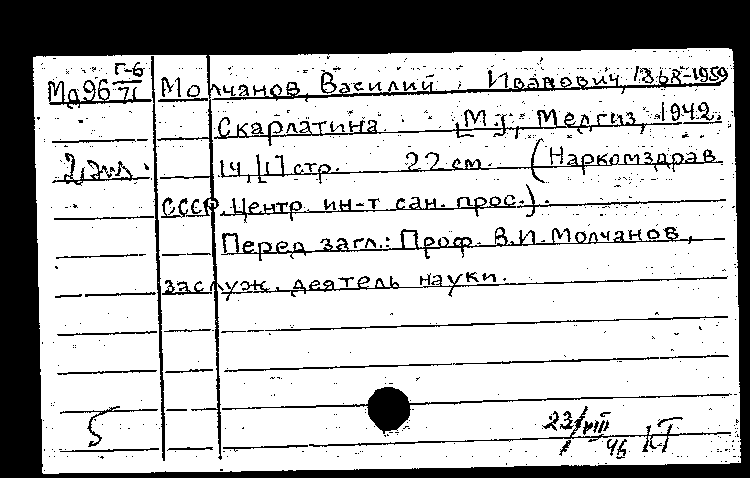 Мд96 Г-6/71 Молчанов, Василий Иванович, 1868-1959
Скарлатина [М.], Медгиз, 1942.
2 экз. 14, [1] стр. 22 см. (Наркомздрав
СССР. Центр. ин-т сан. прос.).
Перед загл.: Проф. В.И. Молчанов,
заслуж. деятель науки.
5 23/VIII 46 КТ